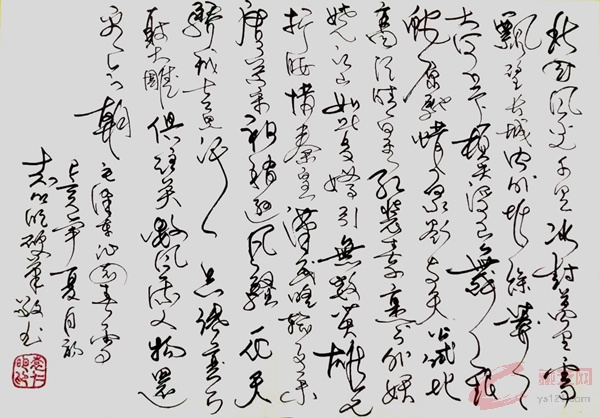 北国风光千里冰封萬里雪
飘望长城内外惟馀莽莽
大河上下顿失滔滔山舞银
蛇原驰蜡象欲与天公试比
高须晴日看红装素裹分外妖
娆江山如此多娇引無数英雄竞
折腰惜秦皇漢武略输文采
唐宗宋祖稍逊风骚一代天
骄成吉思汗只识弯弓
射大雕俱往矣数风流人物还
看今朝
毛泽东沁园春雪
己亥年夏月
硬笔敬书